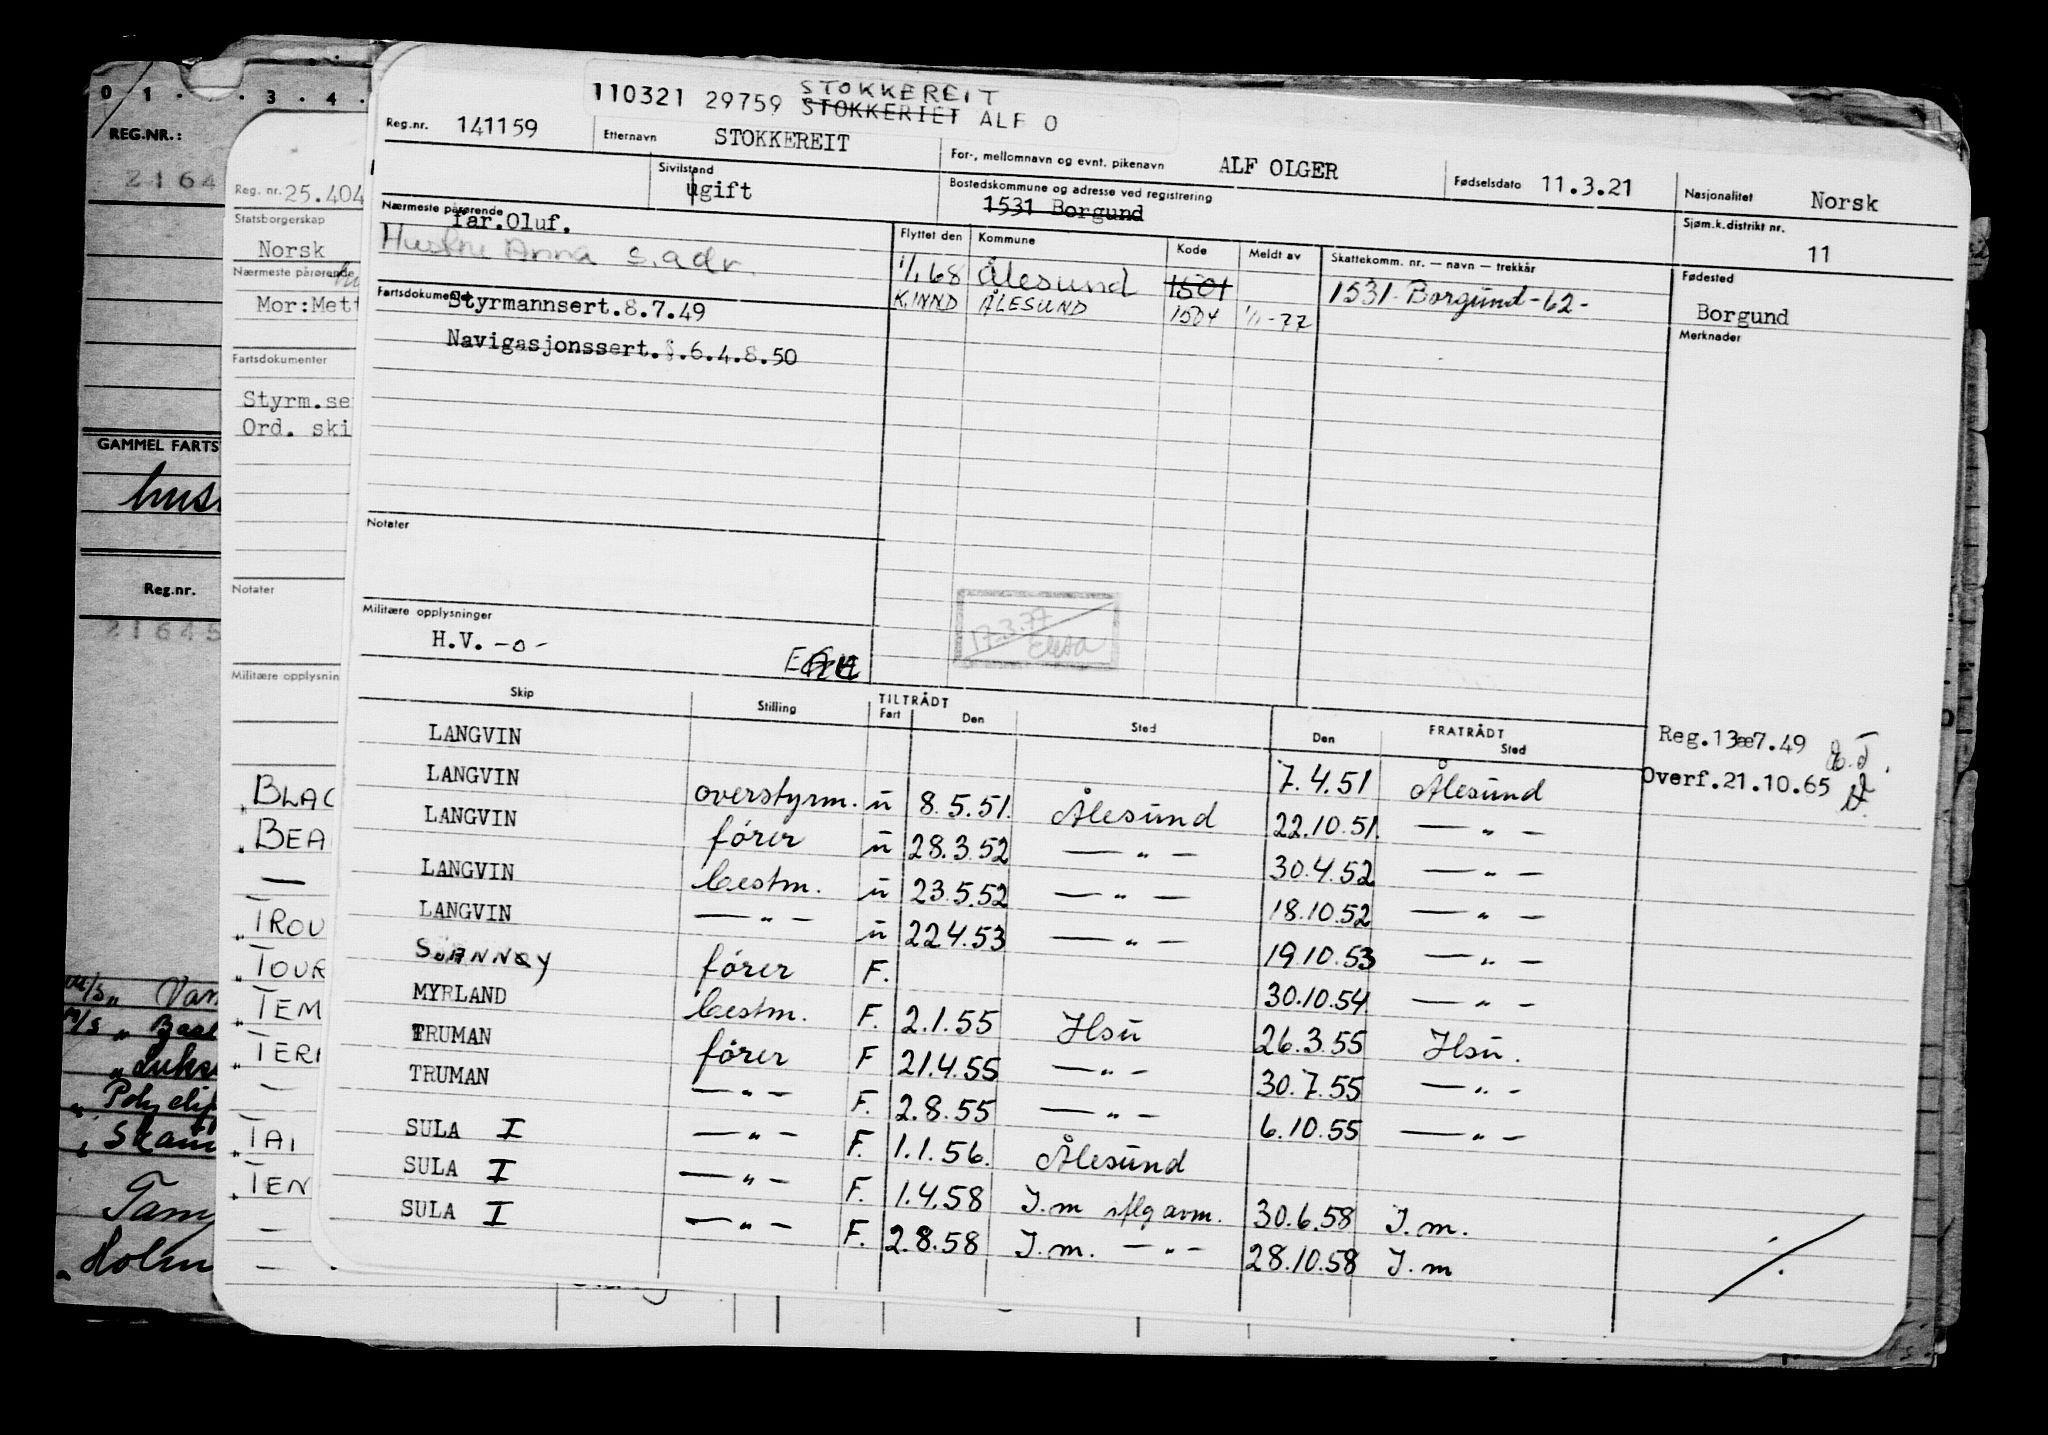 STOKKEREIT
110321 29759 STOKKERIET ALF O
Reg.nr. 141159 Etternavn STOKKEREIT For-, mellomnavn og evnt. pikenavn ALF OLGER Fødselsdato 11.3.21 Nasjonalitet Norsk
Sivilstand ugift Bostedskommune og adresse ved registrering 1531 Borgund Sjøm.k.distrikt nr. 11
Nærmeste pårørende far.Oluf.
Hustru Anna s.adr.
Flyttet den Kommune Kode Meldt av Skattekomm. nr. — navn — trekkår Fødested
1/1 68 Ålesund 1501 1531 Borgund -62- Borgund
K.INND ÅLESUND 1504 1/1-77
Merknader
Fartsdokumenter Styrmannsert.8.7.49
Navigasjonssert. .6.4.8.50
Notater
17.3.77
Militære opplysninger
H.V. -o-
Skip Stilling TILTRÅDT Fart Den Sted FRATRÅDT Den Sted
LANGVIN 7.4.51 Ålesund
LANGVIN overstyrm. u 8.5.51. Ålesund 22.10.51. — " —
LANGVIN fører u 28.3.52 — " — 30.4.52 — " —
LANGVIN bestm. u 23.5.52 — " — 18.10.52 — " —
LANGVIN — " — u 22.4.53 — " — 19.10.53 — " —
fører F. 30.10.54 — " —
MYRLAND bestm. F. 2.1.55 Hsu 26.3.55 Hsu.
TRUMAN fører F 21.4.55 — " — 30.7.55 — " —
TRUMAN — " — F. 2.8.55 — " — 6.10.55 — " —
SULA I — " — F. 1.1.56. Ålesund
SULA I — " — F. 1.4.58 I.m sflg avm. 30.6.58 I.m.
SULA I — " — F. 2.8.58 I.m. — " — 28.10.58 I.m
Reg.13æ7.49
Overf.21.10.65
0 1 . . 3 . 4 .
REG.NR.:
2164
GAMMEL FARTS
Reg.nr.
21645
Holm
Reg. nr. 25.404
Statsborgerskap
Norsk
Nærmeste pårørende
Mor:Mett
Fartsdokumenter
Styrm.se
Ord. ski
Notater
Militære opplysnin
BLAC
BEA
—
TROU
TOUR
TEM
TER
—
TAI
TEN
—